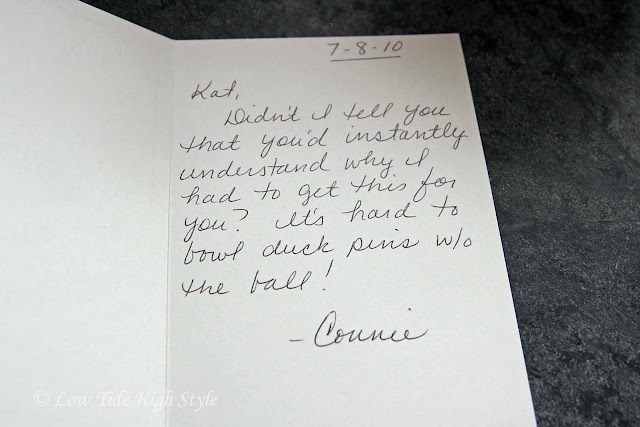 7-8-10
Kat,
Didn't I tell you
that you'd instantly
understand why I
had to get this for
you? It's hard to
bowl duck pins w/o
the ball!
- Connie
© Low Tide High Style